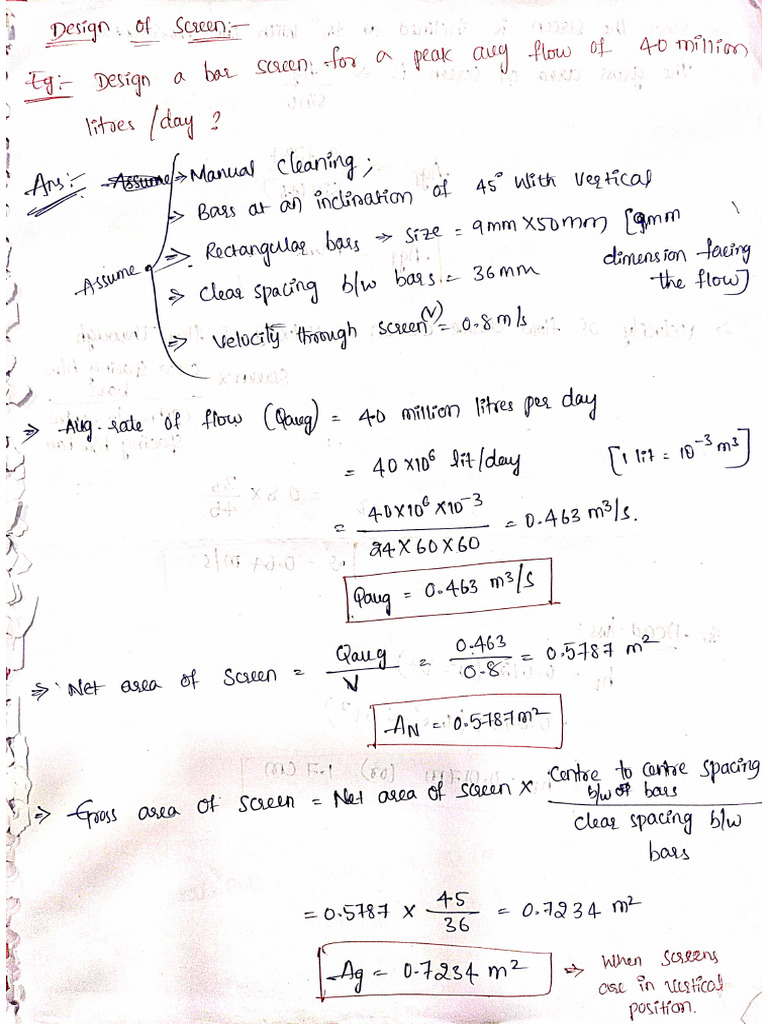 Design of Screen:-
Eg:- Design a bar screen for a peak avg flow of 40 million
litres /day ?
Ans:- Assume → Manual Cleaning;
→ Bars at an inclination of 45° With vertical
→ Rectangular bars → size = 9mm X50mm [9mm
dimension facing
the flow]
Assume
→ Clear spacing b/w bars = 36mm
→ Velocity through screen (V) = 0.8 m/s.
⇒ Avg. rate of flow (Qavg) = 40 million litres per day
= 40 ×10⁶ lit/day [1 lit = 10⁻³ m³]
= 40×10⁶ ×10⁻³ / 24 × 60 × 60 = 0.463 m³/s.
Qavg = 0.463 m³/s
⇒ Net area of Screen = Qavg / V = 0.463 / 0.8 = 0.5787 m²
AN = 0.5787m²
⇒ Gross area of screen = Net area of screen × Centre to centre spacing
b/w of bars
clear spacing b/w
bars
= 0.5787 × 45 / 36 = 0.7234 m²
Ag = 0.7234 m² ⇒ When screens
are in vertical
position.